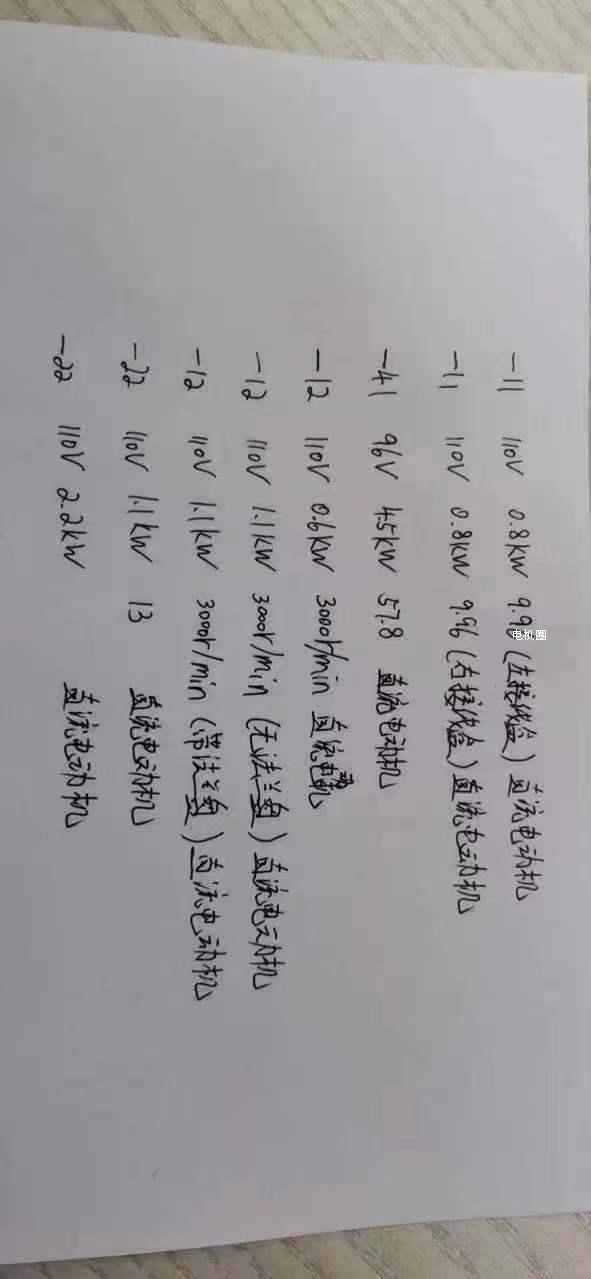 -11 110V 0.8KW 9.96 (左接线盒) 直流电动机
-11 110V 0.8KW 9.96 (右接线盒) 直流电动机
-41 96V 4.5KW 57.8 直流电动机
-12 110V 0.6KW 3000r/min 直流电动机
-12 110V 1.1KW 3000r/min (无法兰盘) 直流电动机
-12 110V 1.1KW 3000r/min (带法兰盘) 直流电动机
-22 110V 1.1KW 13 直流电动机
-22 110V 2.2KW 直流电动机
电机圈